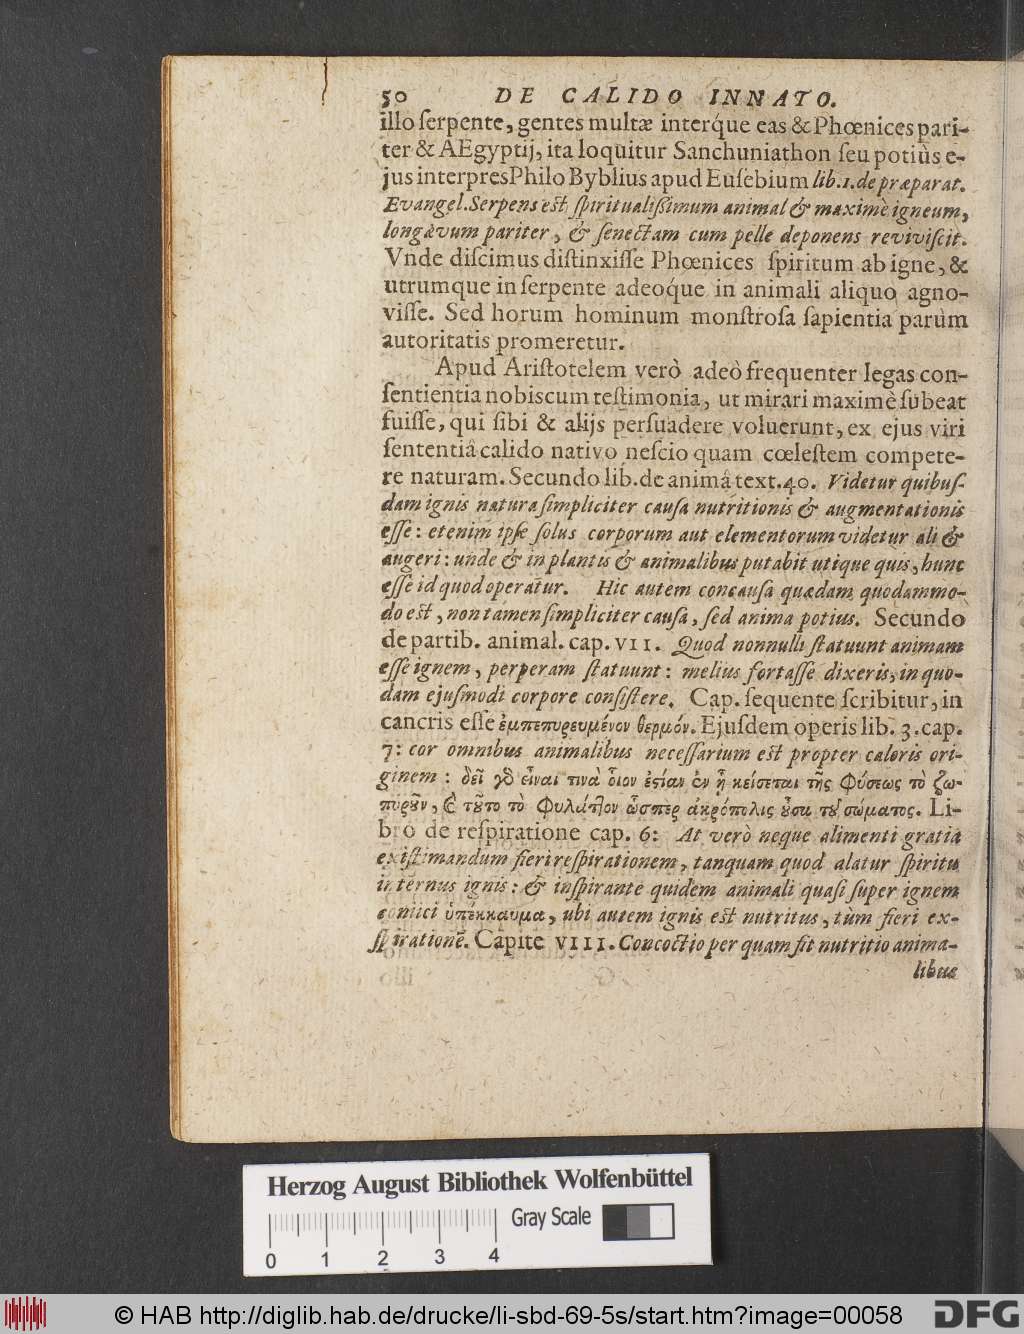 50 DE CALIDO INNATO.
illo ſerpente, gentes multæ interq́ue eas & Phœnices pari-
ter & AEgyptij, ita loquitur Sanchuniathon ſeu potiùs e-
jus interpres Philo Byblius apud Euſebium lib. 1. de præparat.
Evangel. Serpens eſt ſpiritualiſſimum animal & maximè igneum,
longævum pariter, & ſenectam cum pelle deponens reviviſcit.
Vnde diſcimus diſtinxiſſe Phœnices ſpiritum ab igne, &
utrumque in ſerpente adeoq́ue in animali aliquo agno-
viſſe. Sed horum hominum monſtroſa ſapientia parùm
autoritatis promeretur.
Apud Ariſtotelem verò adeò frequenter legas con-
ſentientia nobiscum teſtimonia, ut mirari maximè ſubeat
fuiſſe, qui ſibi & alijs perſuadere voluerunt, ex ejus viri
ſententiâ calido nativo neſcio quam cœleſtem compete-
re naturam. Secundo lib. de animâ text. 40. Videtur quibuſ-
dam ignis natura ſimpliciter cauſa nutritionis & augmentationis
eſſe: etenim ipſe ſolus corporum aut elementorum videtur ali &
augeri: unde & in plantis & animalibus putabit utique quis, hunc
eſſe id quod operatur. Hic autem concauſa quædam quodammo-
do eſt, non tamen ſimpliciter cauſa, ſed anima potius. Secundo
de partib. animal. cap. VII. Quod nonnulli ſtatuunt animam
eſſe ignem, perperam ſtatuunt: melius fortaſſe dixeris, in quo-
dam ejuſmodi corpore conſiſtere. Cap. ſequente ſcribitur, in
cancris eſſe ἐμπεπυρευμένον θερμόν. Ejuſdem operis lib. 3. cap.
7: cor omnibus animalibus neceſſarium eſt propter caloris ori-
ginem: δεῖ γδ εἶναι τινὰ οἷον ἑστίαν ἐν ᾗ κείσεται τῆς φύσεως τὸ ζω-
πυροῦν, ϗ τοῦτο τὸ φυλάτ͂τον ὥσπερ ἀκρόπολις οὖσα τοῦ σώματος. Li-
bro de reſpiratione cap. 6: At verò neque alimenti gratia
exiſtimandum fieri reſpirationem, tanquam quod alatur ſpiritu
internus ignis: & inſpirante quidem animali quaſi ſuper ignem
coniici ὑπέκκαυμα, ubi autem ignis eſt nutritus, tùm fieri ex-
ſpirationē. Capite VIII. Concoctio per quam fit nutritio anima-
libus
Herzog August Bibliothek Wolfenbüttel
Gray Scale
0 1 2 3 4
© HAB http://diglib.hab.de/drucke/li-sbd-69-5s/start.htm?image=00058
DFG